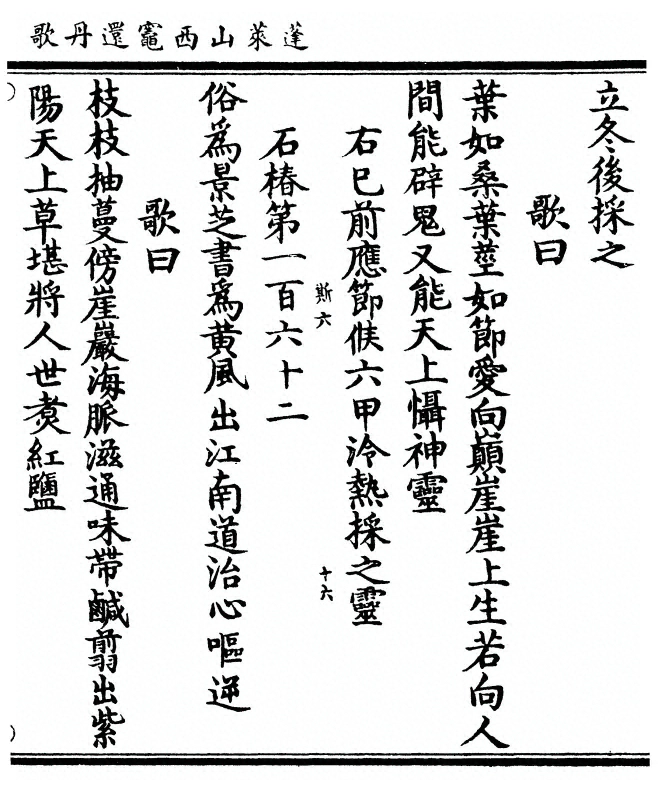 蓬萊山西竈還丹歌
立冬後採之
歌曰
葉如桑葉莖如節愛向巔崖崖上生若向人
間能辟鬼又能天上懾神靈
右巳前應節候六甲冷熱採之靈
斯六
十六
石椿第一百六十二
俗爲景芝書爲黃風出江南道治心嘔逆
歌曰
枝枝抽蔓傍崖巖海脈滋通味帶鹹翦出紫
陽天上草堪將人世煑紅鹽